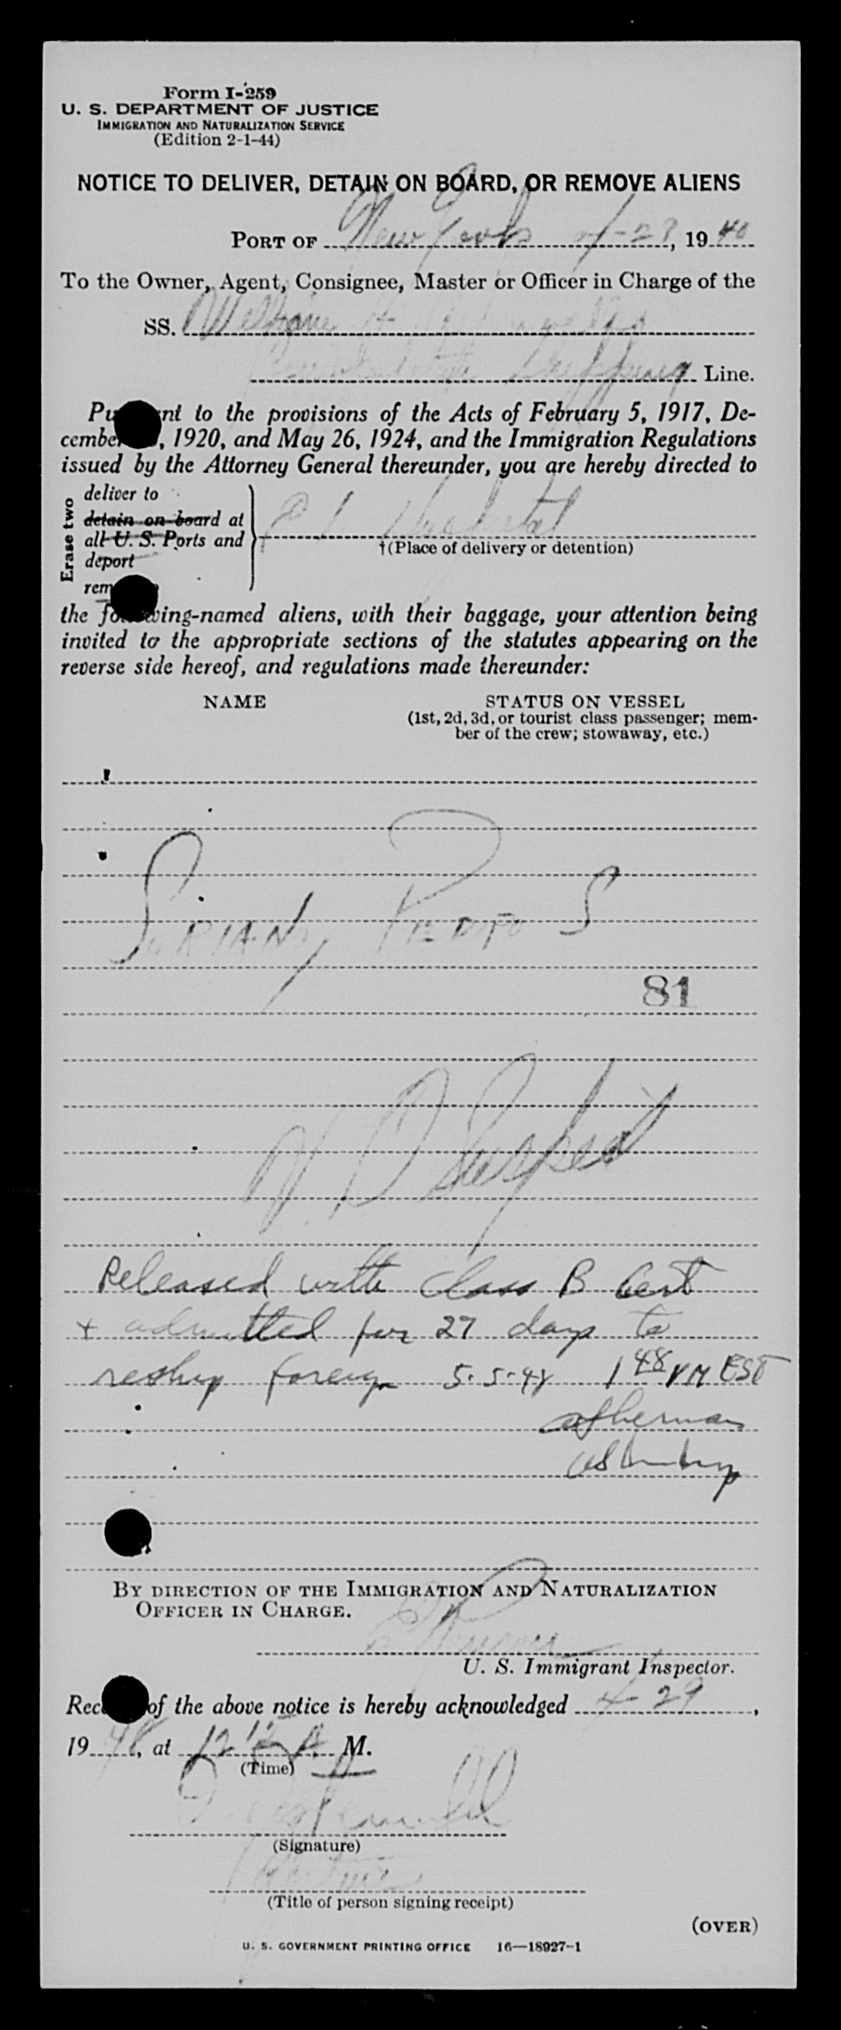 Form I-259
U. S. DEPARTMENT OF JUSTICE
IMMIGRATION AND NATURALIZATION SERVICE
(Edition 2-1-44)
NOTICE TO DELIVER, DETAIN ON BOARD, OR REMOVE ALIENS
PORT OF New York 4-28, 19 48
To the Owner, Agent, Consignee, Master or Officer in Charge of the
SS. William
Shipping Line.
nt to the provisions of the Acts of February 5, 1917, De-
cembe , 1920, and May 26, 1924, and the Immigration Regulations
issued by the Attorney General thereunder, you are hereby directed to
Erase two
deliver to
detain on board at
all U. S. Ports and
deport
rem
Hospital
†(Place of delivery or detention)
the following-named aliens, with their baggage, your attention being
invited to the appropriate sections of the statutes appearing on the
reverse side hereof, and regulations made thereunder:
NAME STATUS ON VESSEL
(1st, 2d, 3d, or tourist class passenger; mem-
ber of the crew; stowaway, etc.)
SORIANO, PEDRO S
81
V. D Suspect
Released with Class B Cert
+ admitted for 27 days to
reship foreign 5-5-48 1 48 PM EST
BY DIRECTION OF THE IMMIGRATION AND NATURALIZATION
OFFICER IN CHARGE.
U. S. Immigrant Inspector.
Rec of the above notice is hereby acknowledged 4-29,
19 48, at 12 15 A M.
(Time)
(Signature)
(Title of person signing receipt)
(OVER)
U. S. GOVERNMENT PRINTING OFFICE 16—18927-1